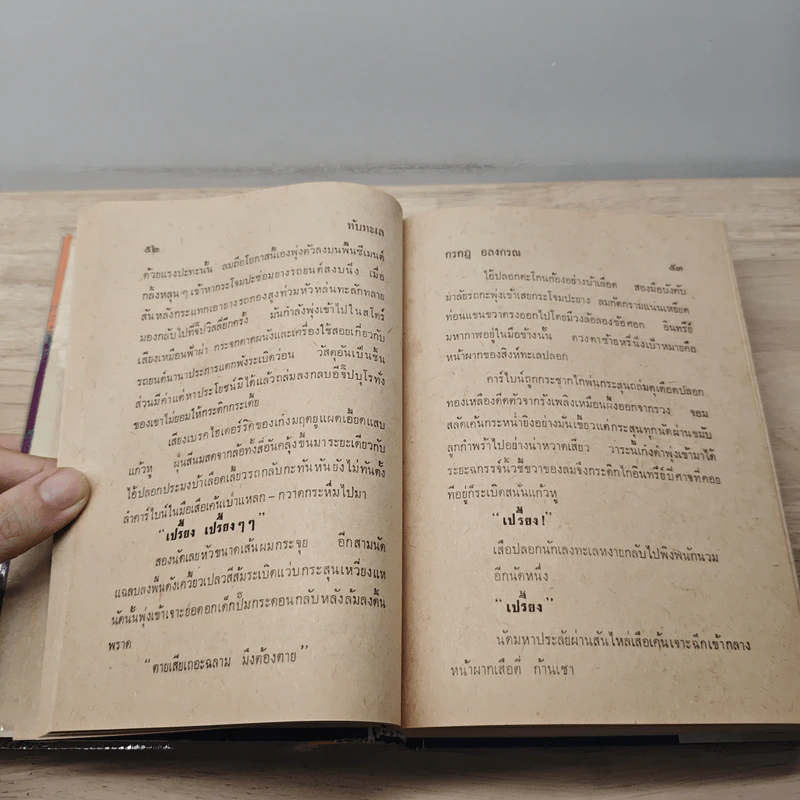 ทับทะเล
๕๒
ด้วยแรงปะทะนั้น ลมถือโอกาสนี้เองพุ่งตัวลงบนพื้นซีเมนต์
กลิ้งหลุนๆ เข้าหากระโจมปะซ่อมยางรถยนต์สงบนิ่ง เมื่อ
สันหลังกระแทกเอายางรถกองสูงท่วมหัวหล่นทะลักทลาย
มองกลับไปที่จี๊ปวิลลี่อีกครั้ง มันกำลังพุ่งเข้าไปในสโตร์
เสียงเหมือนฟ้าผ่า กระจกตาดผนังและเครื่องใช้สอยเกี่ยวกับ
รถยนต์นานาประการแตกพังระเบิดว่อน วัสดุอันเป็นชิ้น
ส่วนมีค่าแต่หาประโยชน์มิได้แล้วถล่มลงกลบอีจิ๊ปบุโรทั่ง
ของเขาไม่ยอมให้กระดิกกระเดี้ย
เสียงเบรคไฮเดอร์ริคของเก๋งมฤตยูแผดเอี้ยดแสบ
แก้วหู ฝุ่นสีนมสดจากล้อทั้งสี่อันคลุ้งขึ้นมาระยะเดียวกับ
ไอ้ปลอกประมงบ้าเลือดเลี้ยวรถกลับกะทันหันยังไม่ทันตั้ง
ลำคาร์ไบน์ในมือเสือเค้นเบ้าแหลก – กวาดกระหึ่มไปมา
“เปรี้ยง เปรี้ยงๆๆ”
สองนัดเลยหัวขนาดเส้นผมกระจุย อีกสามนัด
แฉลบลงพื้นดังเควี้ยวเปลวสีส้มระเบิดแว่บกระสุนเหวี่ยงแห
นัดนั้นพุ่งเข้าเจาะยอดอกเด็กปั๊มกระดอนกลับหลังล้มลงดิ้น
พราด
“ตายเสียเถอะฉลาม มึงต้องตาย”
กรกฎ อลงกรณ
๕๓
ไอ้ปลอกตะโกนก้องอย่างบ้าเลือด สองมือบังคับ
มาลัยรถกะพุ่งเข้าเสยกระโจมปะยาง ลมกัดกรามแน่นเหยียด
ท่อนแขนขวาตรงออกไปโดยมีวงล้อลองข้อศอก อินทรีย์
มหากาฬอยู่ในมือข้างนั้น ดวงตาซ้ายหรี่นิ่งเป้าหมายคือ
หน้าผากของสิงห์ทะเลปลอก
คาร์ไบน์ถูกกระชากไกพ่นกระสุนถล่มดุเดือดปลอก
ทองเหลืองดีดตัวจากรังเพลิงเหมือนผึ้งออกจากรวง จอม
สลัดเค้นกระหน่ำยิงอย่างมันเขี้ยวแต่กระสุนทุกนัดผ่านขมับ
ลูกกำพร้าไปอย่างน่าหวาดเสียว วาระนี้เก๋งดำพุ่งเข้ามาได้
ระยะฉกรรจ์นิ้วชี้ขวาของลมจึงกระดิกไกอินทรีย์ปีศาจที่คอย
ทีอยู่ก็ระเบิดสนั่นแก้วหู
“เปรี้ยง!”
เสือปลอกนักเลงทะเลหงายกลับไปพิงพนักนวม
อีกนัดหนึ่ง
“เปรี้ยง”
นัดมหาประลัยผ่านสันไหล่เสือเค้นเจาะฉึกเข้ากลาง
หน้าผากเสือตี่ ก้านเชา